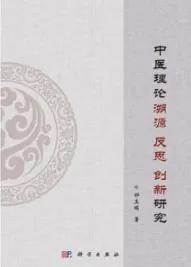 中医理论溯源 反思 创新研究
著
科学出版社